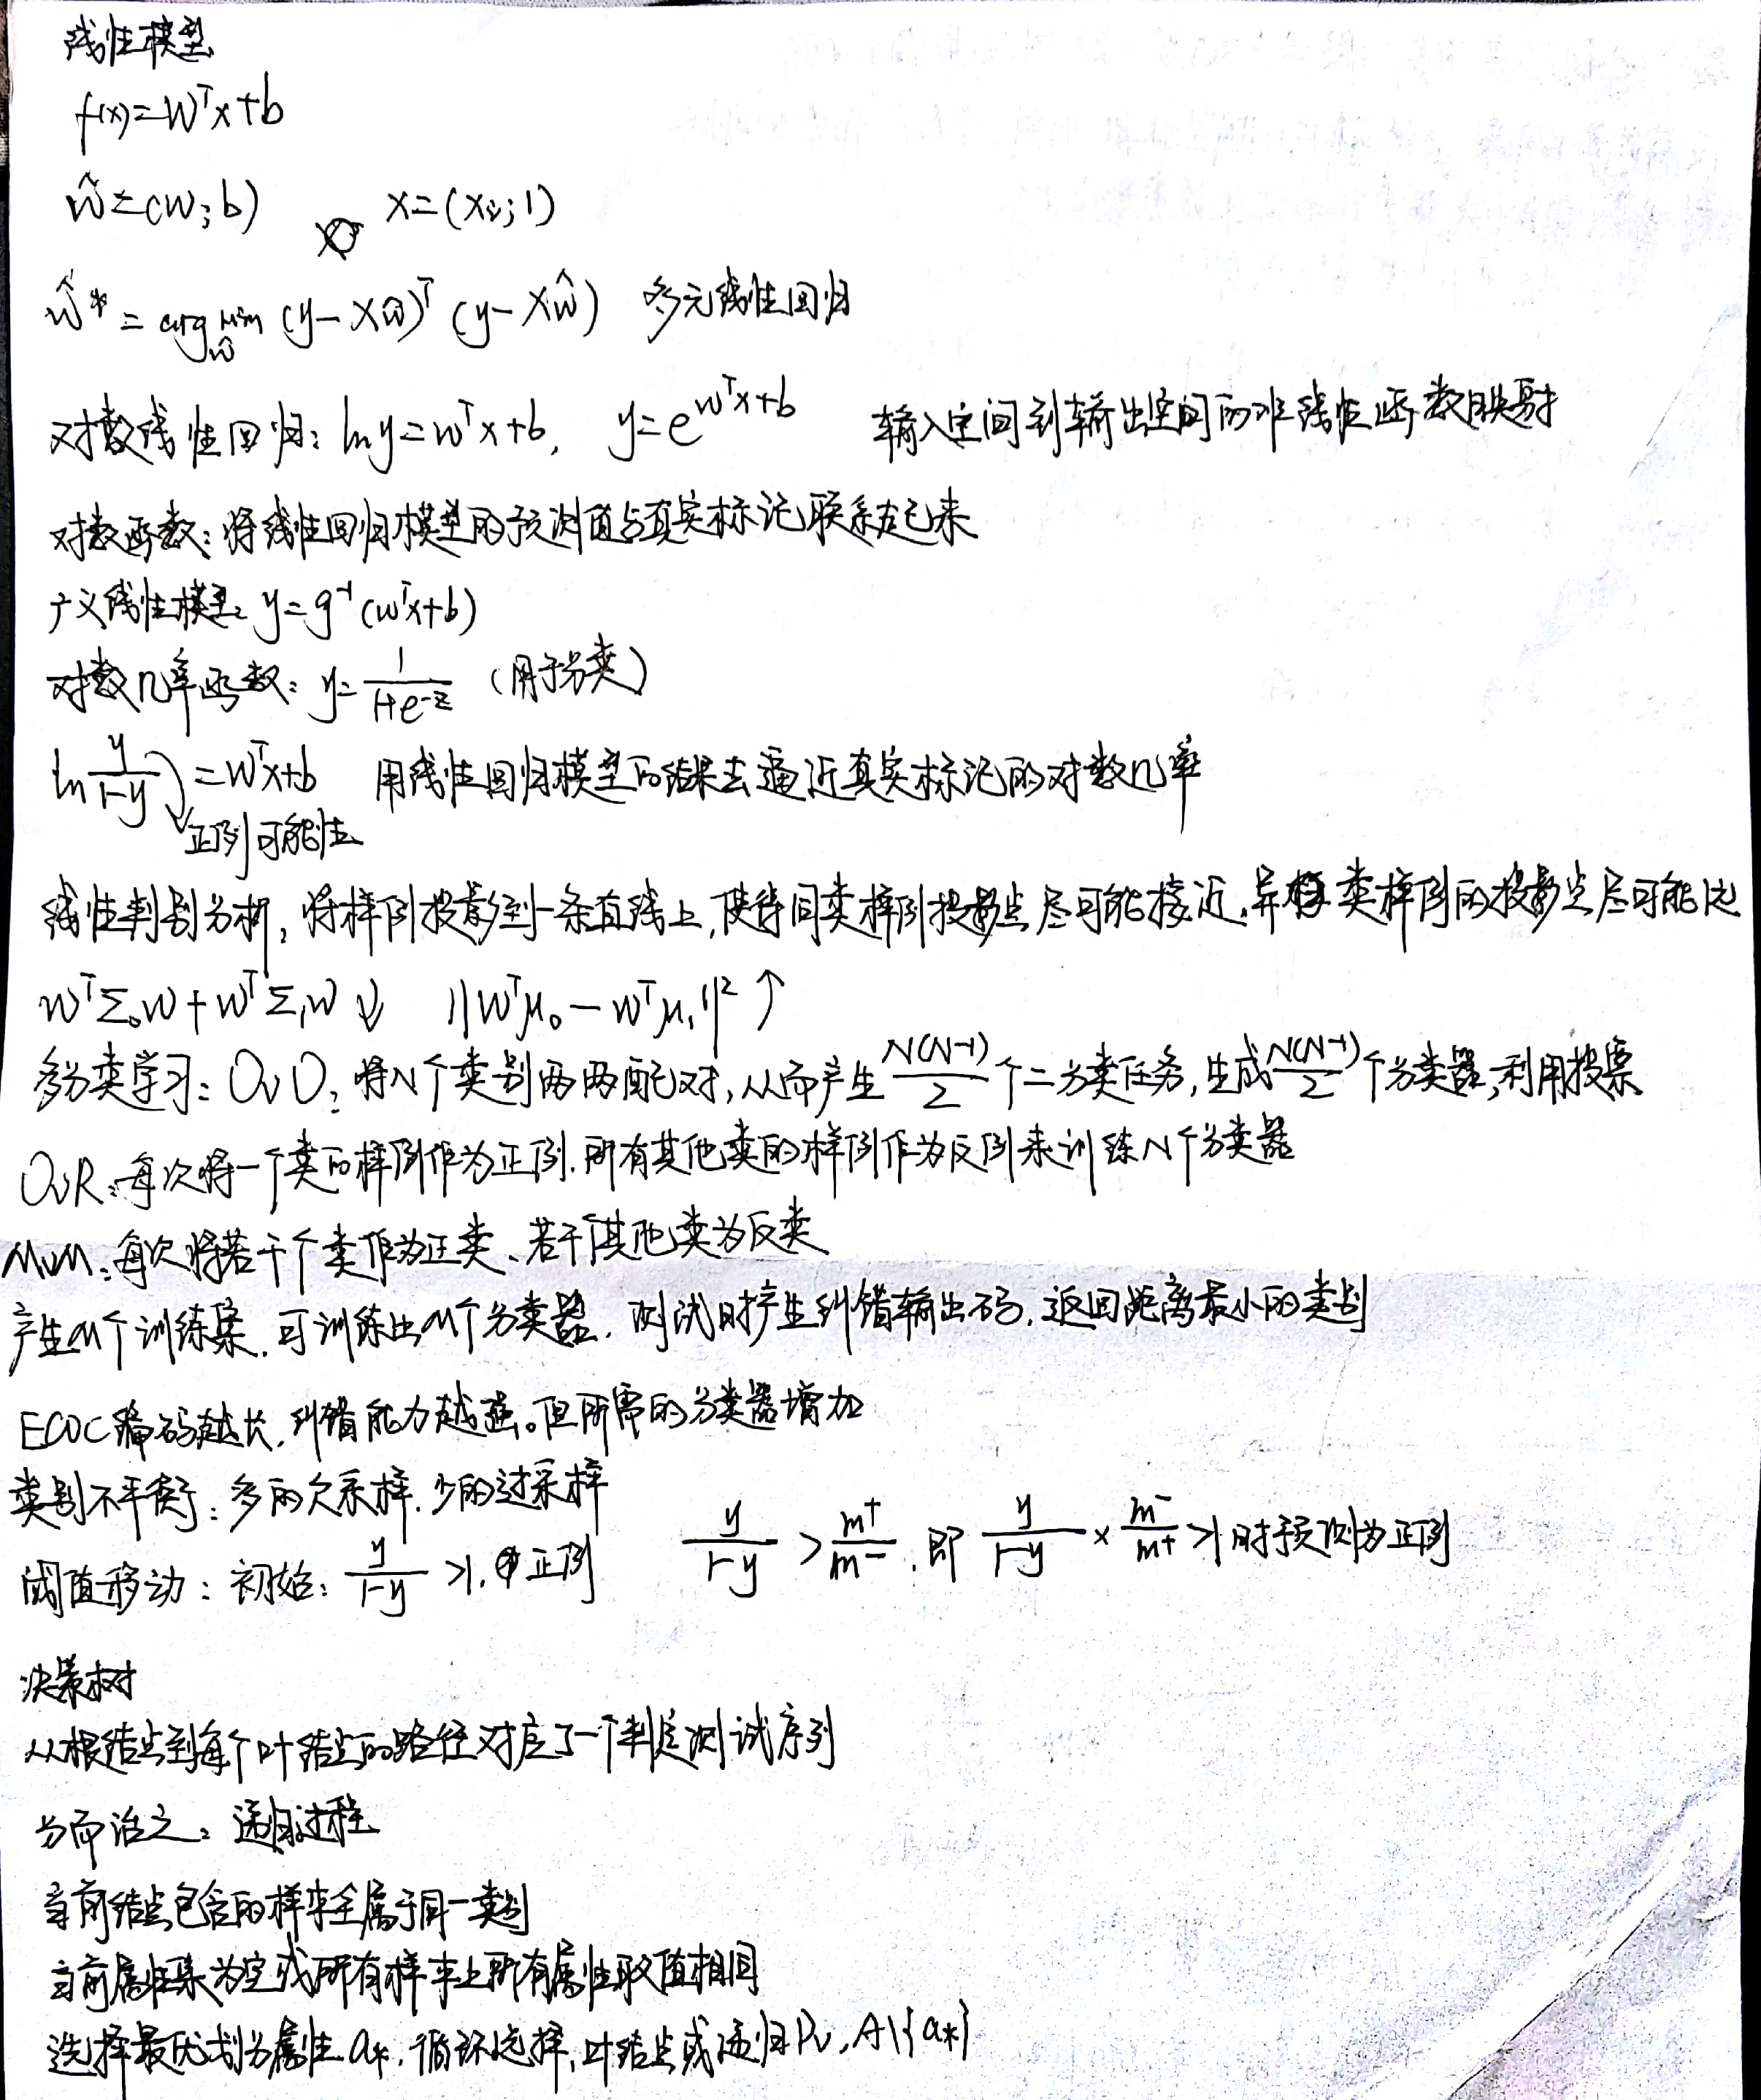 线性模型
f(x)=wᵀx+b
ŵ=(w;b) x=(xᵢ;1)
ŵ* = arg min_ŵ (y-Xŵ)ᵀ (y-Xŵ) 多元线性回归
对数线性回归: ln y=wᵀx+b, y=e^(wᵀx+b) 输入空间到输出空间的非线性函数映射
对数函数: 将线性回归模型的预测值与真实标记联系起来
广义线性模型: y=g⁻¹(wᵀx+b)
对数几率函数: y=1/(1+e^(-z)) (用于分类)
ln y/(1-y) =wᵀx+b 用线性回归模型的结果去逼近真实标记的对数几率
正例可能性
线性判别分析: 将样例投影到一条直线上,使得同类样例投影点尽可能接近,异类样例的投影点尽可能远
wᵀΣ₀w+wᵀΣ₁w ↓ ||wᵀμ₀-wᵀμ₁||² ↑
多分类学习: OvO: 将N个类别两两配对,从而产生 N(N-1)/2 个二分类任务,生成 N(N-1)/2 个分类器,利用投票
OvR: 每次将一个类的样例作为正例,所有其他类的样例作为反例来训练N个分类器
MvM: 每次将若干个类作为正类、若干个其他类为反类
产生M个训练集,可训练出M个分类器. 测试时产生纠错输出码,返回距离最小的类别
ECOC编码越长,纠错能力越强。但所需的分类器增加
类别不平衡: 多的欠采样,少的过采样
阈值移动: 初始: y/(1-y) >1, 正例 y/(1-y) > m⁺/m⁻, 即 y/(1-y) × m⁻/m⁺ >1 时预测为正例
决策树
从根结点到每个叶结点的路径对应了一个判定测试序列
分而治之: 递归过程
当前结点包含的样本全属于同一类别
当前属性集为空或所有样本上所有属性取值相同
选择最优划分属性 a*, 循环选择,叶结点或递归 Dv, A\{a*}